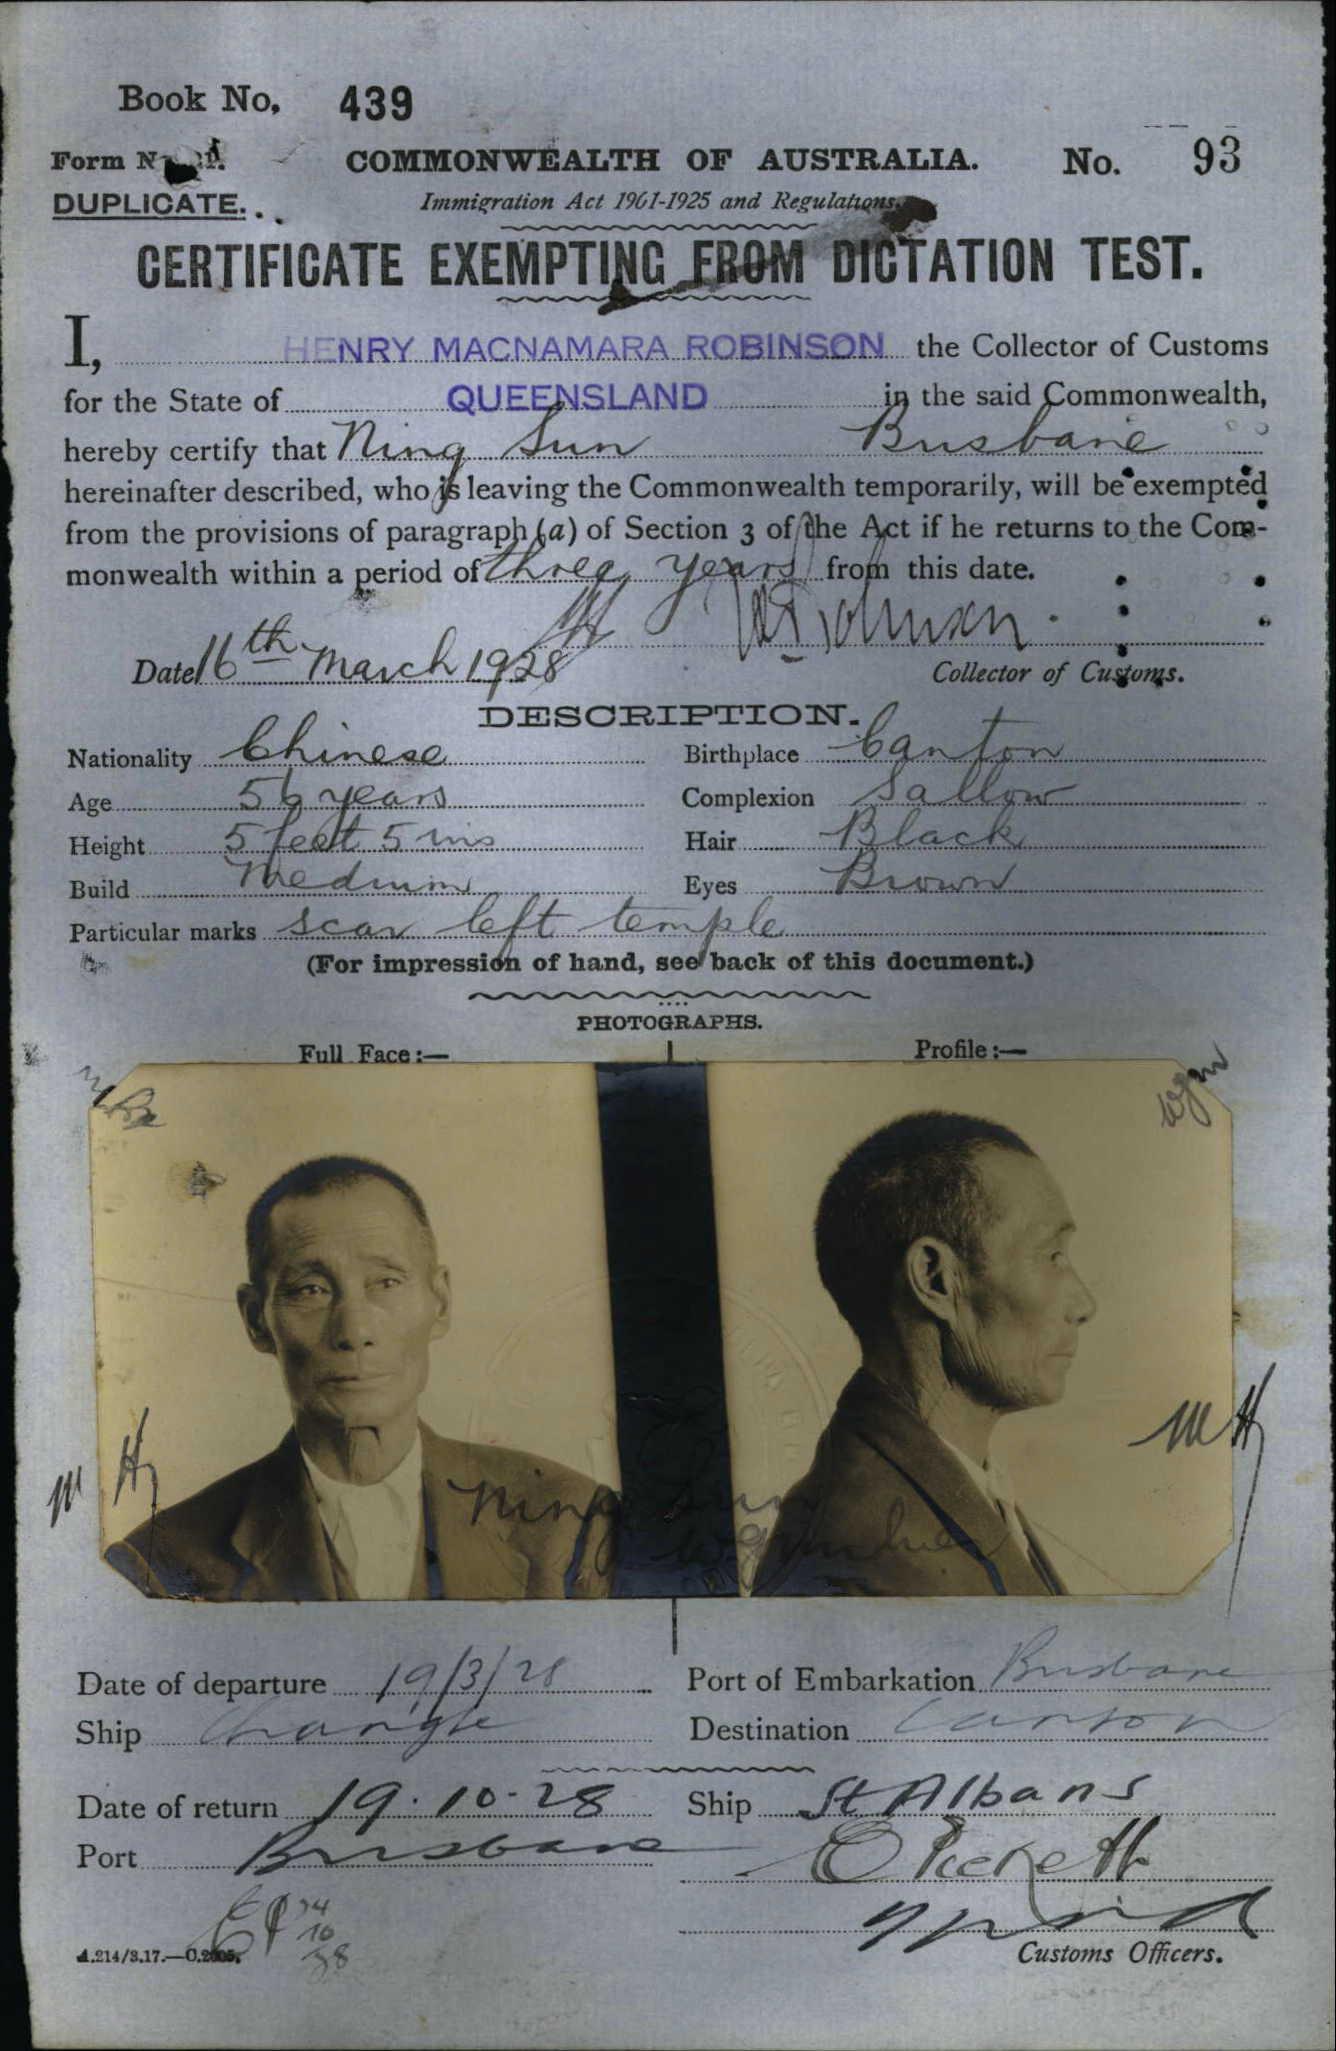 Book No. 439
Form No. 21.
COMMONWEALTH OF AUSTRALIA. No. 93
DUPLICATE.
Immigration Act 1901-1925 and Regulations.
CERTIFICATE EXEMPTING FROM DICTATION TEST.
I, HENRY MACNAMARA ROBINSON the Collector of Customs
for the State of QUEENSLAND in the said Commonwealth,
hereby certify that Ning Sun Brisbane
hereinafter described, who is leaving the Commonwealth temporarily, will be exempted
from the provisions of paragraph (a) of Section 3 of the Act if he returns to the Com-
monwealth within a period of three years from this date.
Date 16th March 1928
Collector of Customs.
DESCRIPTION.
Nationality Chinese Birthplace Canton
Age 56 years Complexion Sallow
Height 5 feet 5 ins Hair Black
Build Medium Eyes Brown
Particular marks scar left temple
(For impression of hand, see back of this document.)
PHOTOGRAPHS.
Full Face:— Profile:—
WH WH
Ning Sun
Date of departure 19/3/28 Port of Embarkation Brisbane
Ship Changte Destination Canton
Date of return 19.10.28 Ship St Albans
Port Brisbane
Customs Officers.